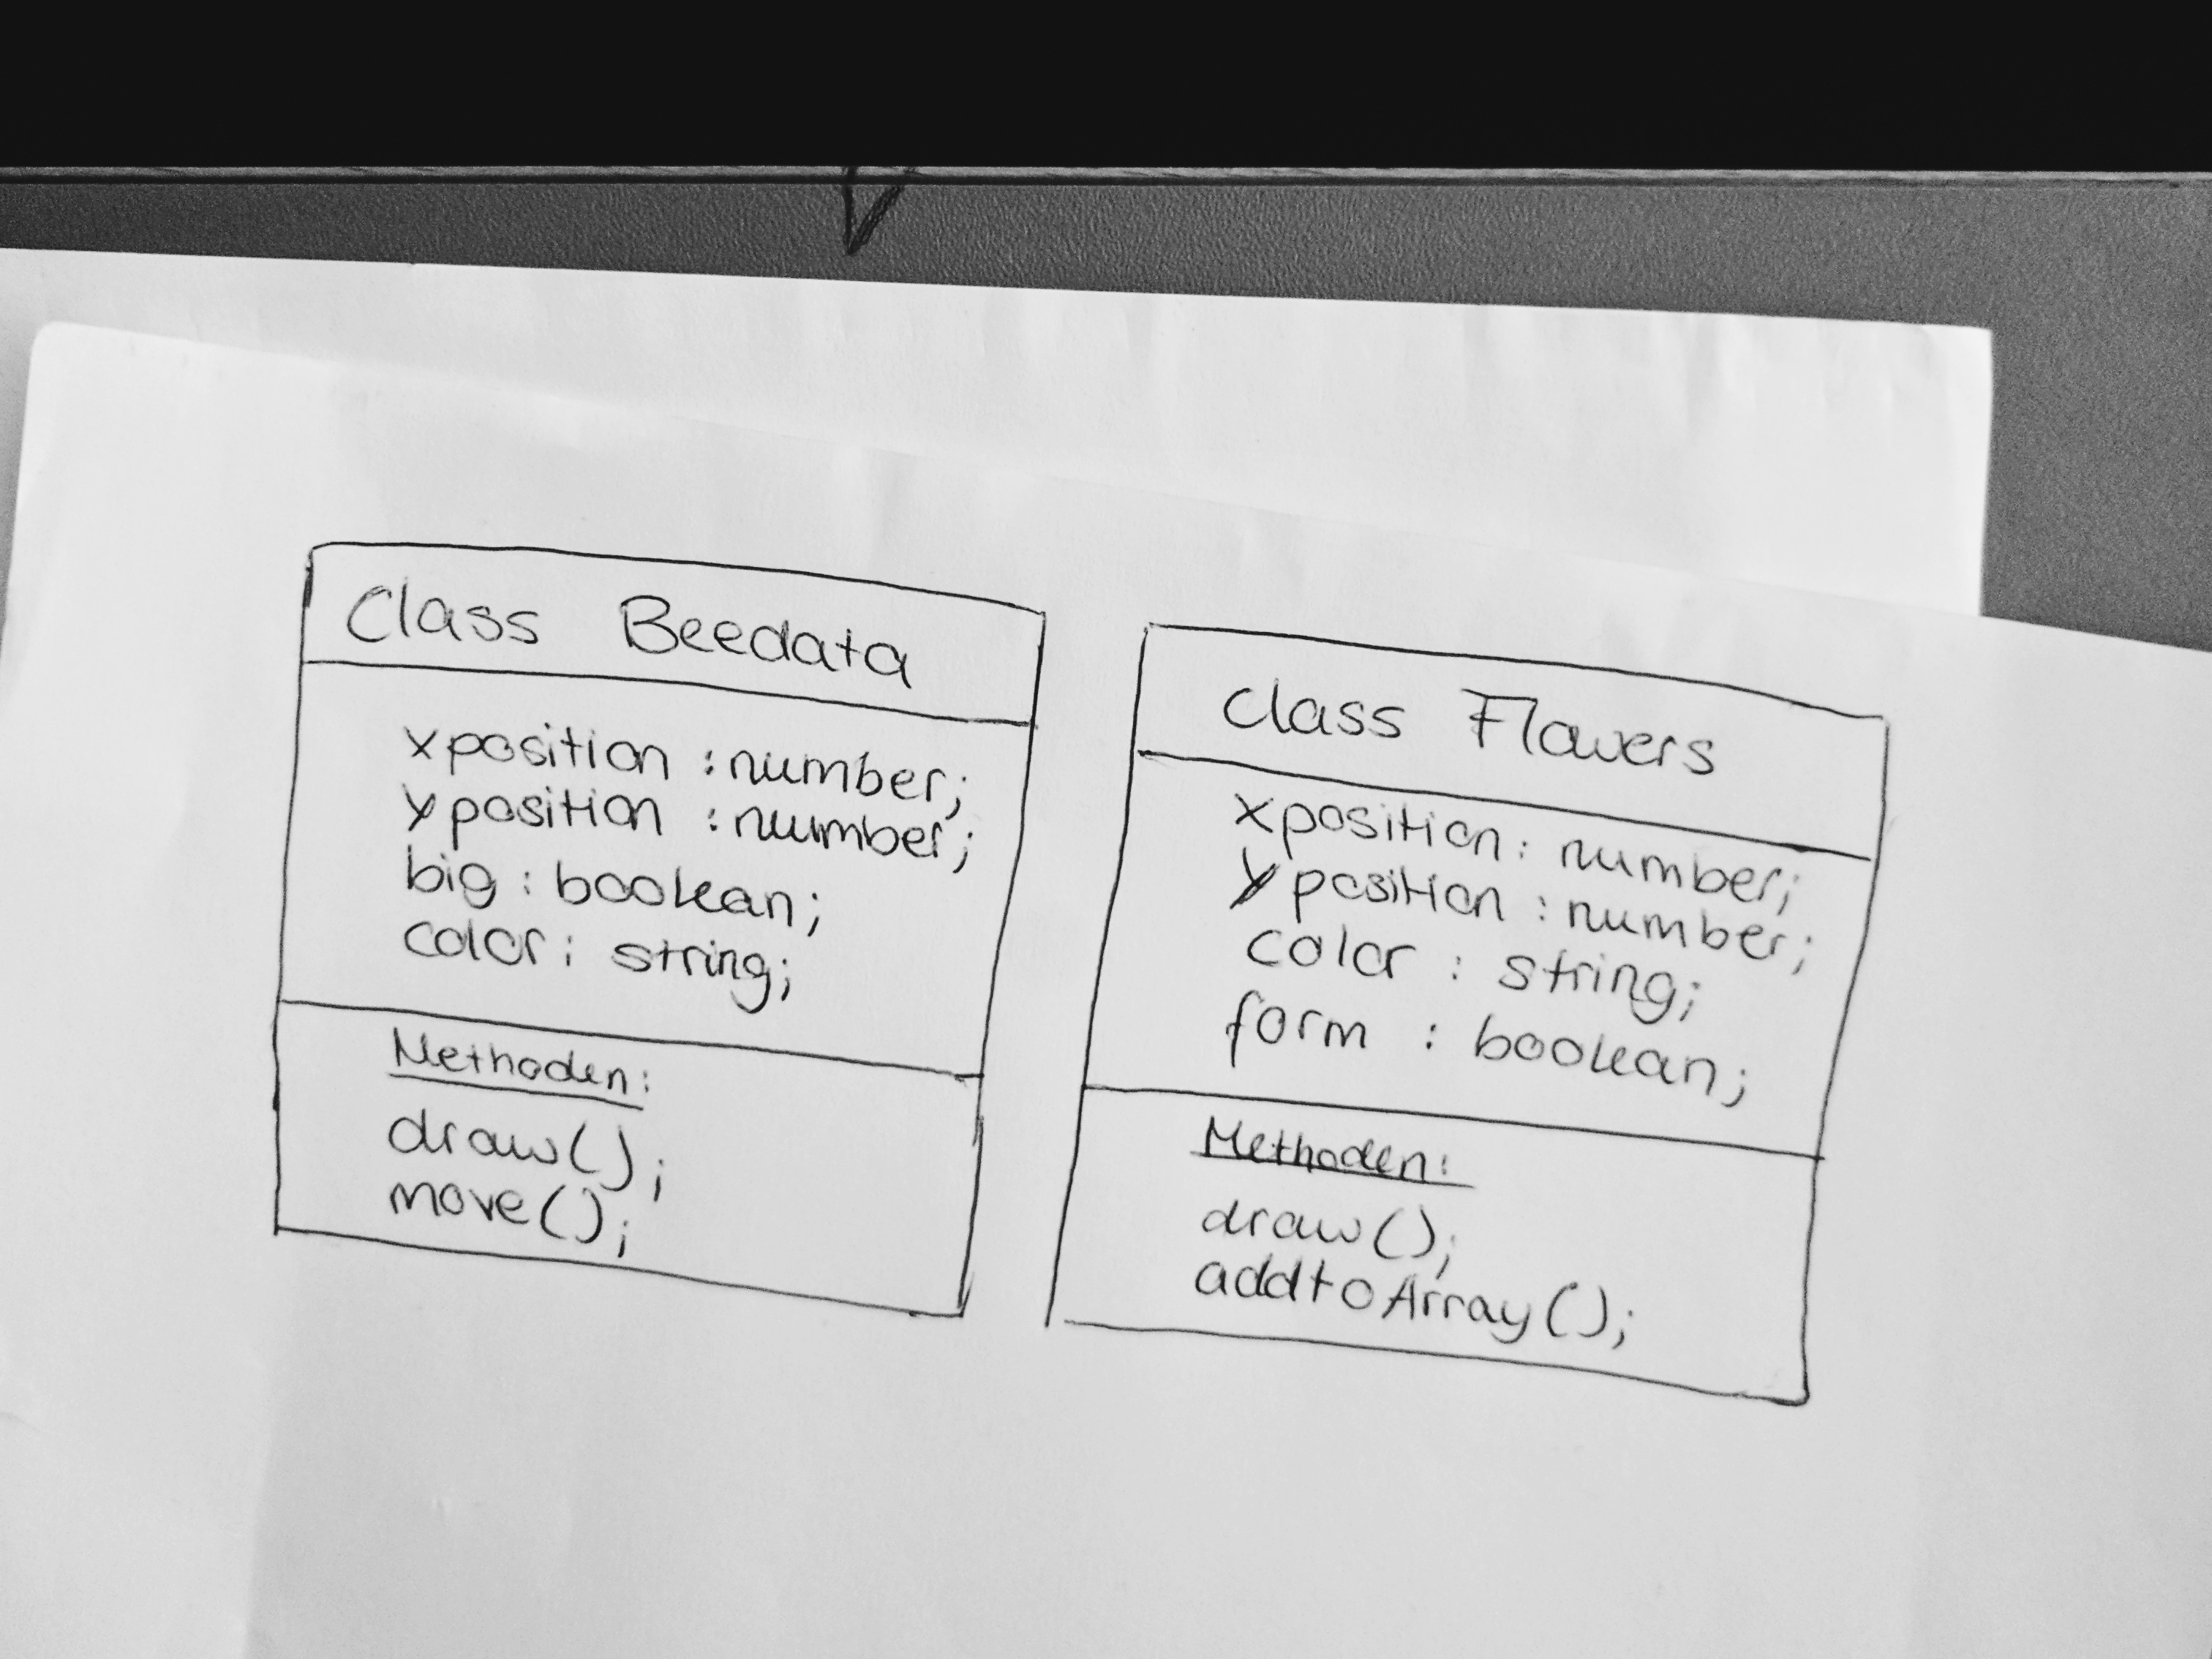 Class Beedata
xposition : number;
yposition : number;
big : boolean;
color : string;
Methoden:
draw();
move();
class Flowers
xposition : number;
yposition : number;
color : string;
form : boolean;
Methoden:
draw();
addtoArray();